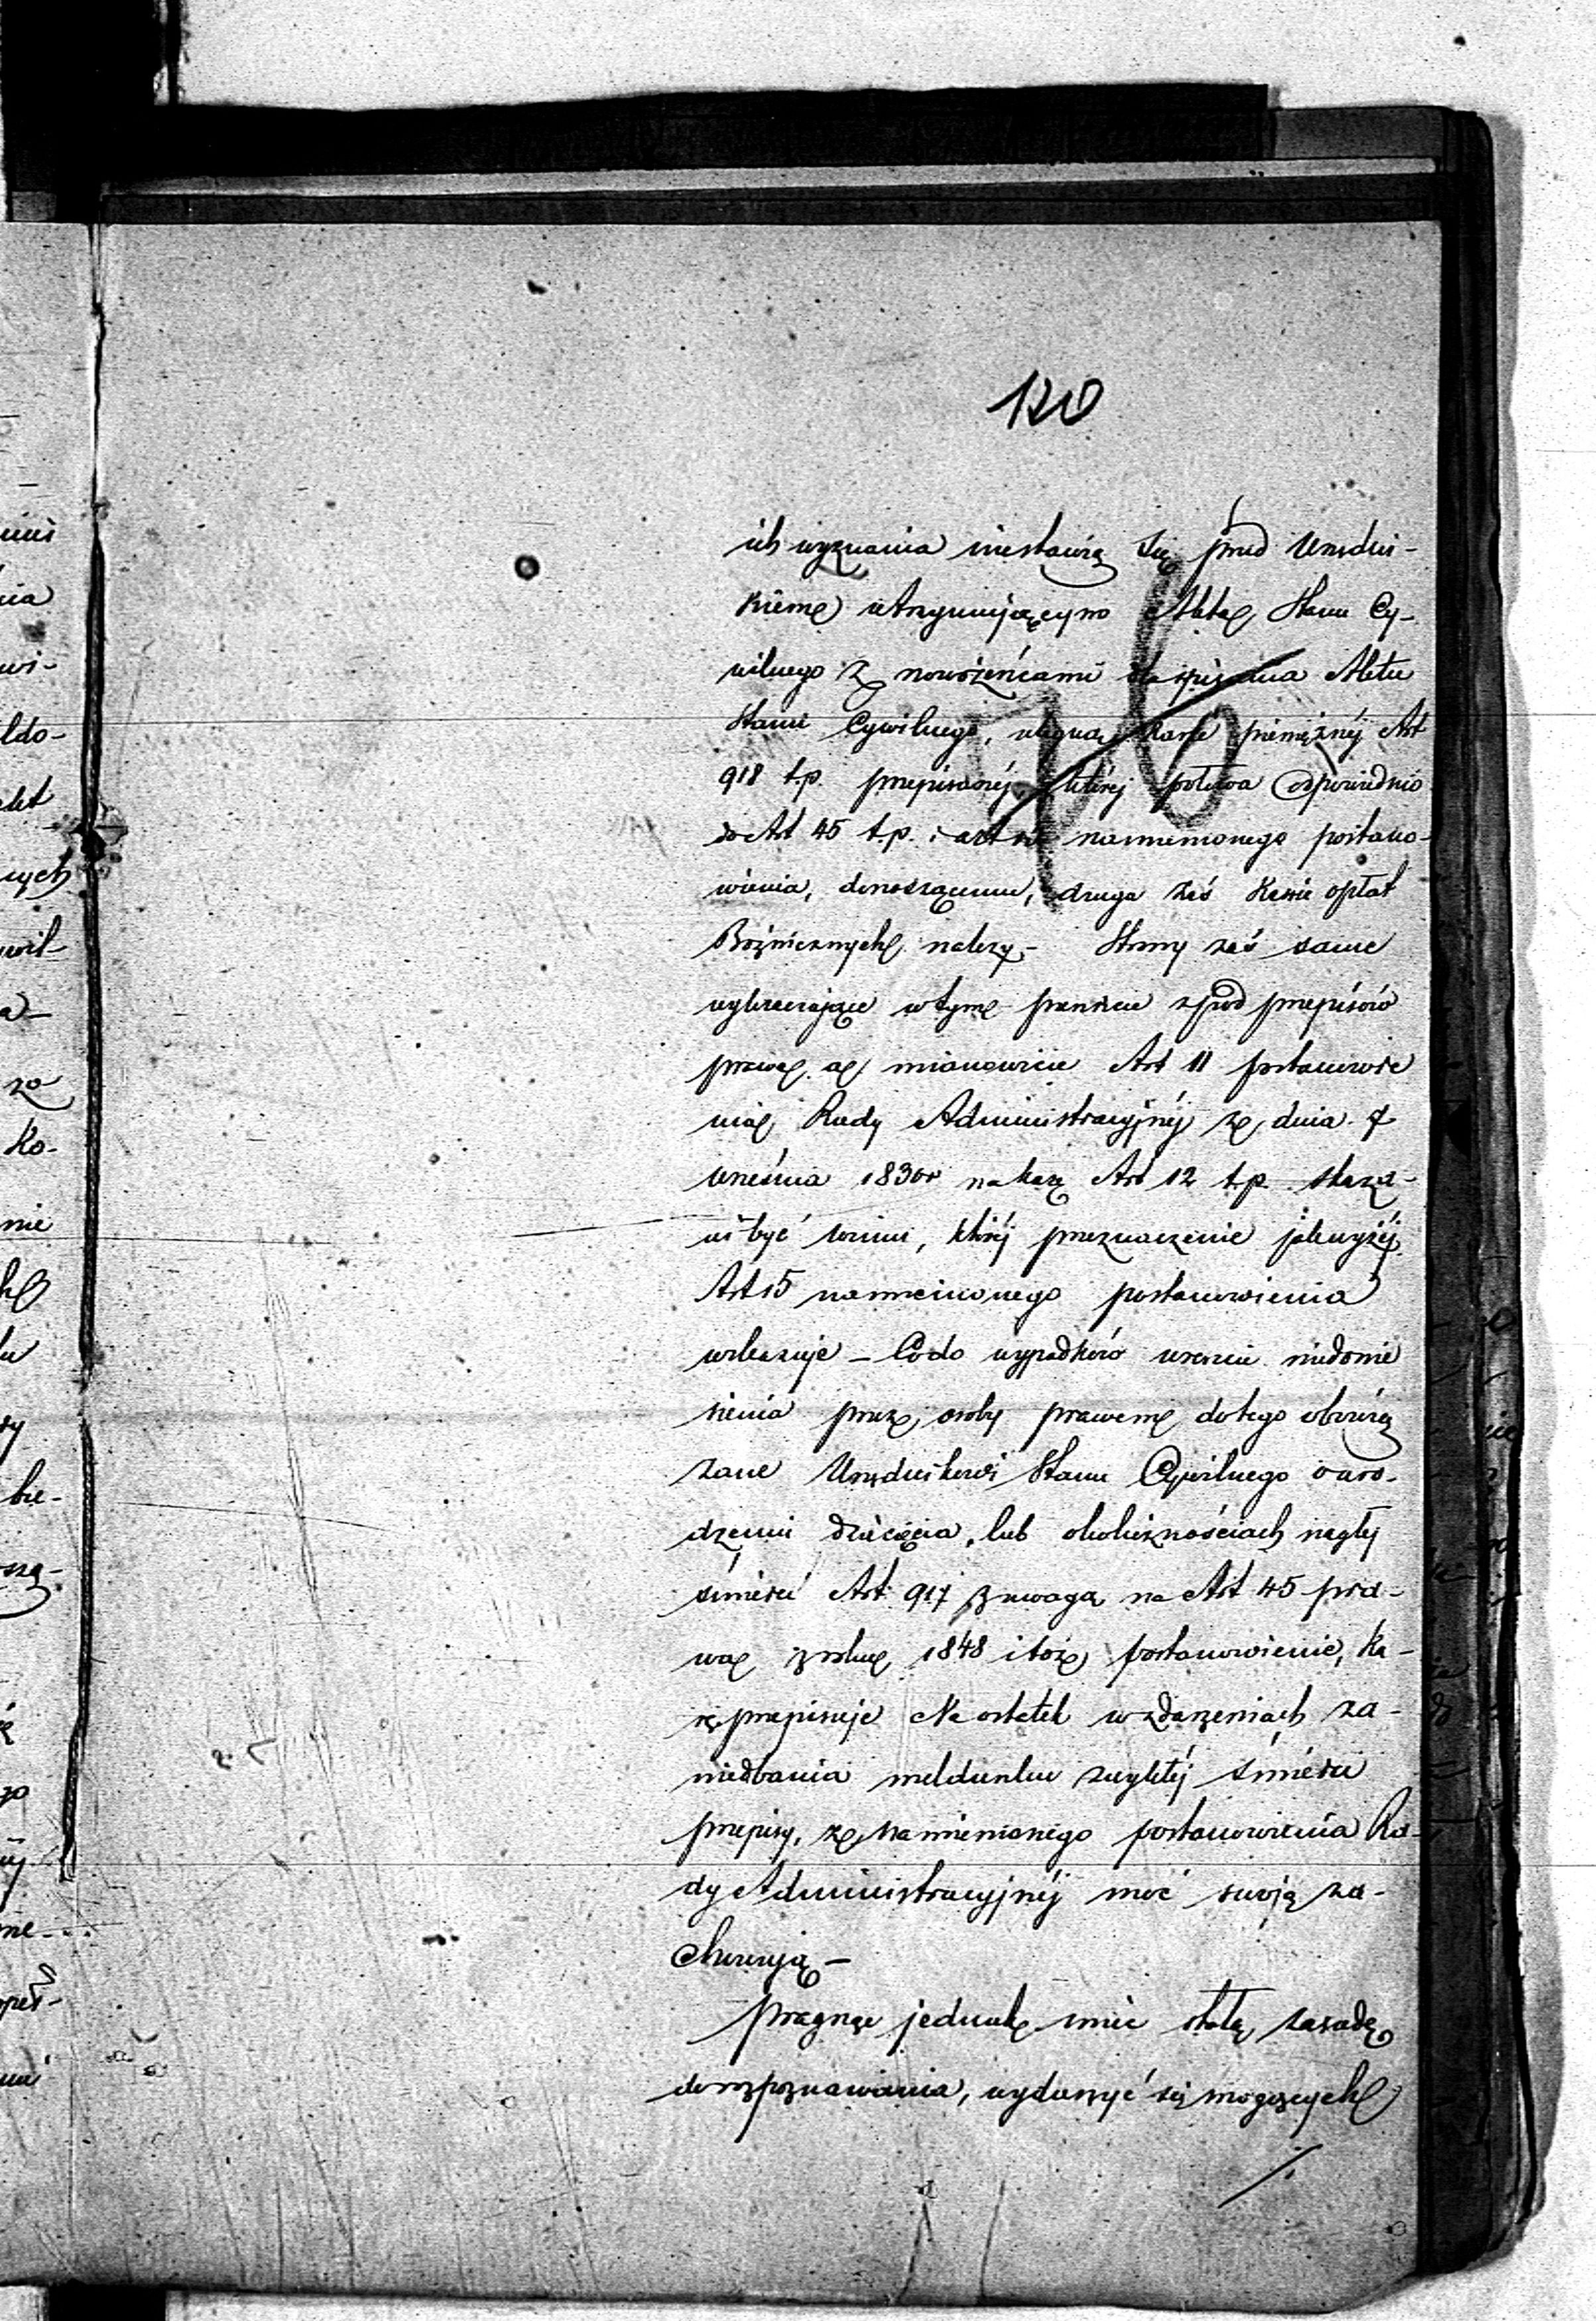 120
ich wyznania niestawią się przed Urzędni-
kiem utrzymującym Akta Stanu Cy-
wilnego z nowożeńcami dla spisania Aktu
Stanu Cywilnego, ulegną karze pieniężnéj Art
918 t.p. przepisanéj, któréj połowa odpowiednio
do Art 45 t.p. i art namienionego postano-
wienia, donoszącemu, druga zaś Kassie opłat
Bożnicznych należy – Strony zaś same
wykraczające w tym względzie z pod przepisów
prawa a mianowicie Art 11 postanowie
nia Rady Administracyjnéj z dnia 7
Września 1830r na karę Art 12 t.p. skaza-
ni być winni, któréj przeznaczenie jak wyżéj
Art 15 namienionego postanowienia
wskazuje – Co do wypadków wreszcie niedonie
sienia przez osoby prawem do tego obowią
zane Urzędnikowi Stanu Cywilnego o uro-
dzeniu dziecięcia, lub okolicznościach nagłéj
śmierci Art 917 z uwagą na Art 45 pra-
wa z roku 1848 i toż postanowienie, ka-
rę przepisuje Na ostatek w zdarzeniach za-
niedbania meldunku zwykłéj śmierci
przepisy, z namienionego postanowienia Ra-
dy Administracyjnéj moc swoją za-
chowują –
Pragnąc jednak mieć stałą zasadę
do rozpoznawania, wydarzyć się mogących